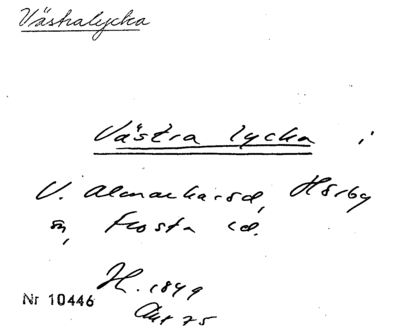 Västralycka
Västra lycka i
V. Almarharöd, Hörby
sn, Frosta hd.
H. 1849
Akt 75
Nr 10446